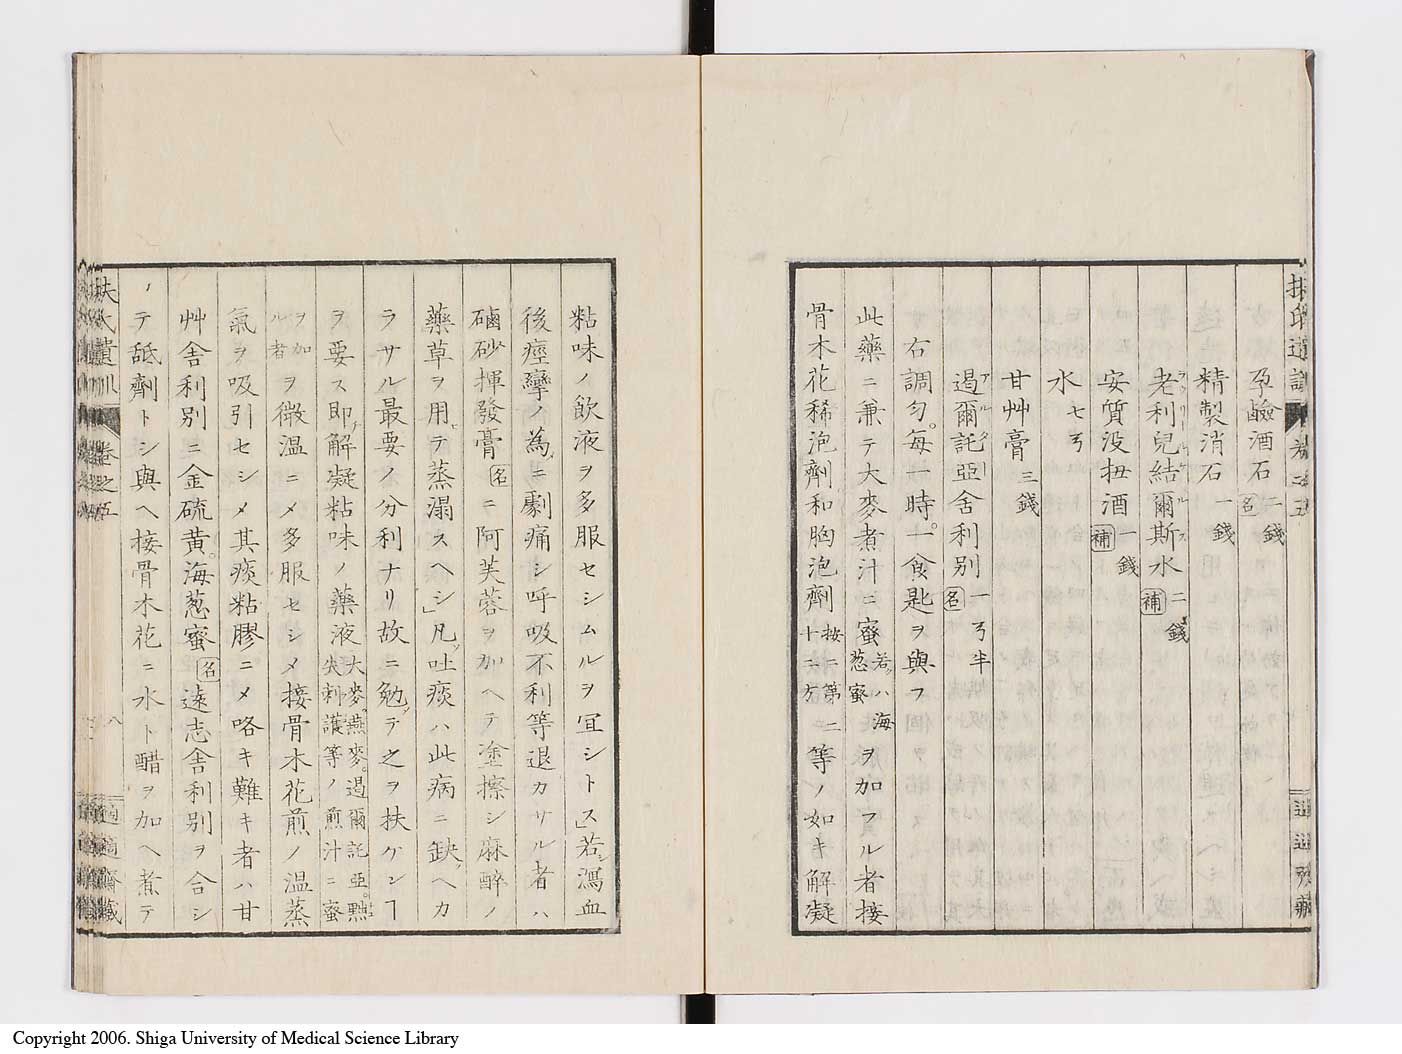 孕鹼酒石 名 二錢
精製消石 一錢
老利兒結爾斯水 補 二錢
安質没扭酒 補 一錢
水 七弓
甘艸膏 三錢
遏爾託亞舍利別 名 一弓半
右調匀。每一時。十一食匙ヲ與フ
此藥ニ兼テ大麥煮汁ニ蜜若ハ海葱蜜ヲ加フル者接
骨木花稀泡劑和胸泡劑按ニ第十二方二等ノ如キ解凝
粘味ノ飲液ヲ多服セシムルヲ宜シトス」若シ瀉血
後痙攣ノ為ニ劇痛シ呼吸不利等退カサル者ハ
磠砂揮發膏名ニ阿芙蓉ヲ加ヘテ塗擦シ麻醉ノ
藥草ヲ用テ蒸溻スヘシ」凡吐痰ハ此病ニ缺ヘカ
ラサル最要ノ分利ナリ故ニ勉テ之ヲ扶ケンヿ
ヲ要ス即解凝粘味ノ藥液大麥。燕麥。遏爾託亞。㷿尖刺護等ノ煎汁ニ蜜
ヲ加ル者ヲ微温ニメ多服セシメ接骨木花煎ノ温蒸
氣ヲ吸引セシメ其痰粘膠ニメ咯キ難キ者ハ甘
艸舎利別ニ金硫黄。海葱蜜名遠志舎利別ヲ合シ
ノテ舐劑トシ與ヘ接骨木花ニ水ト醋ヲ加ヘ煮テ
扶氏遺訓 卷之五
八
適適齋藏
Copyright 2006. Shiga University of Medical Science Library